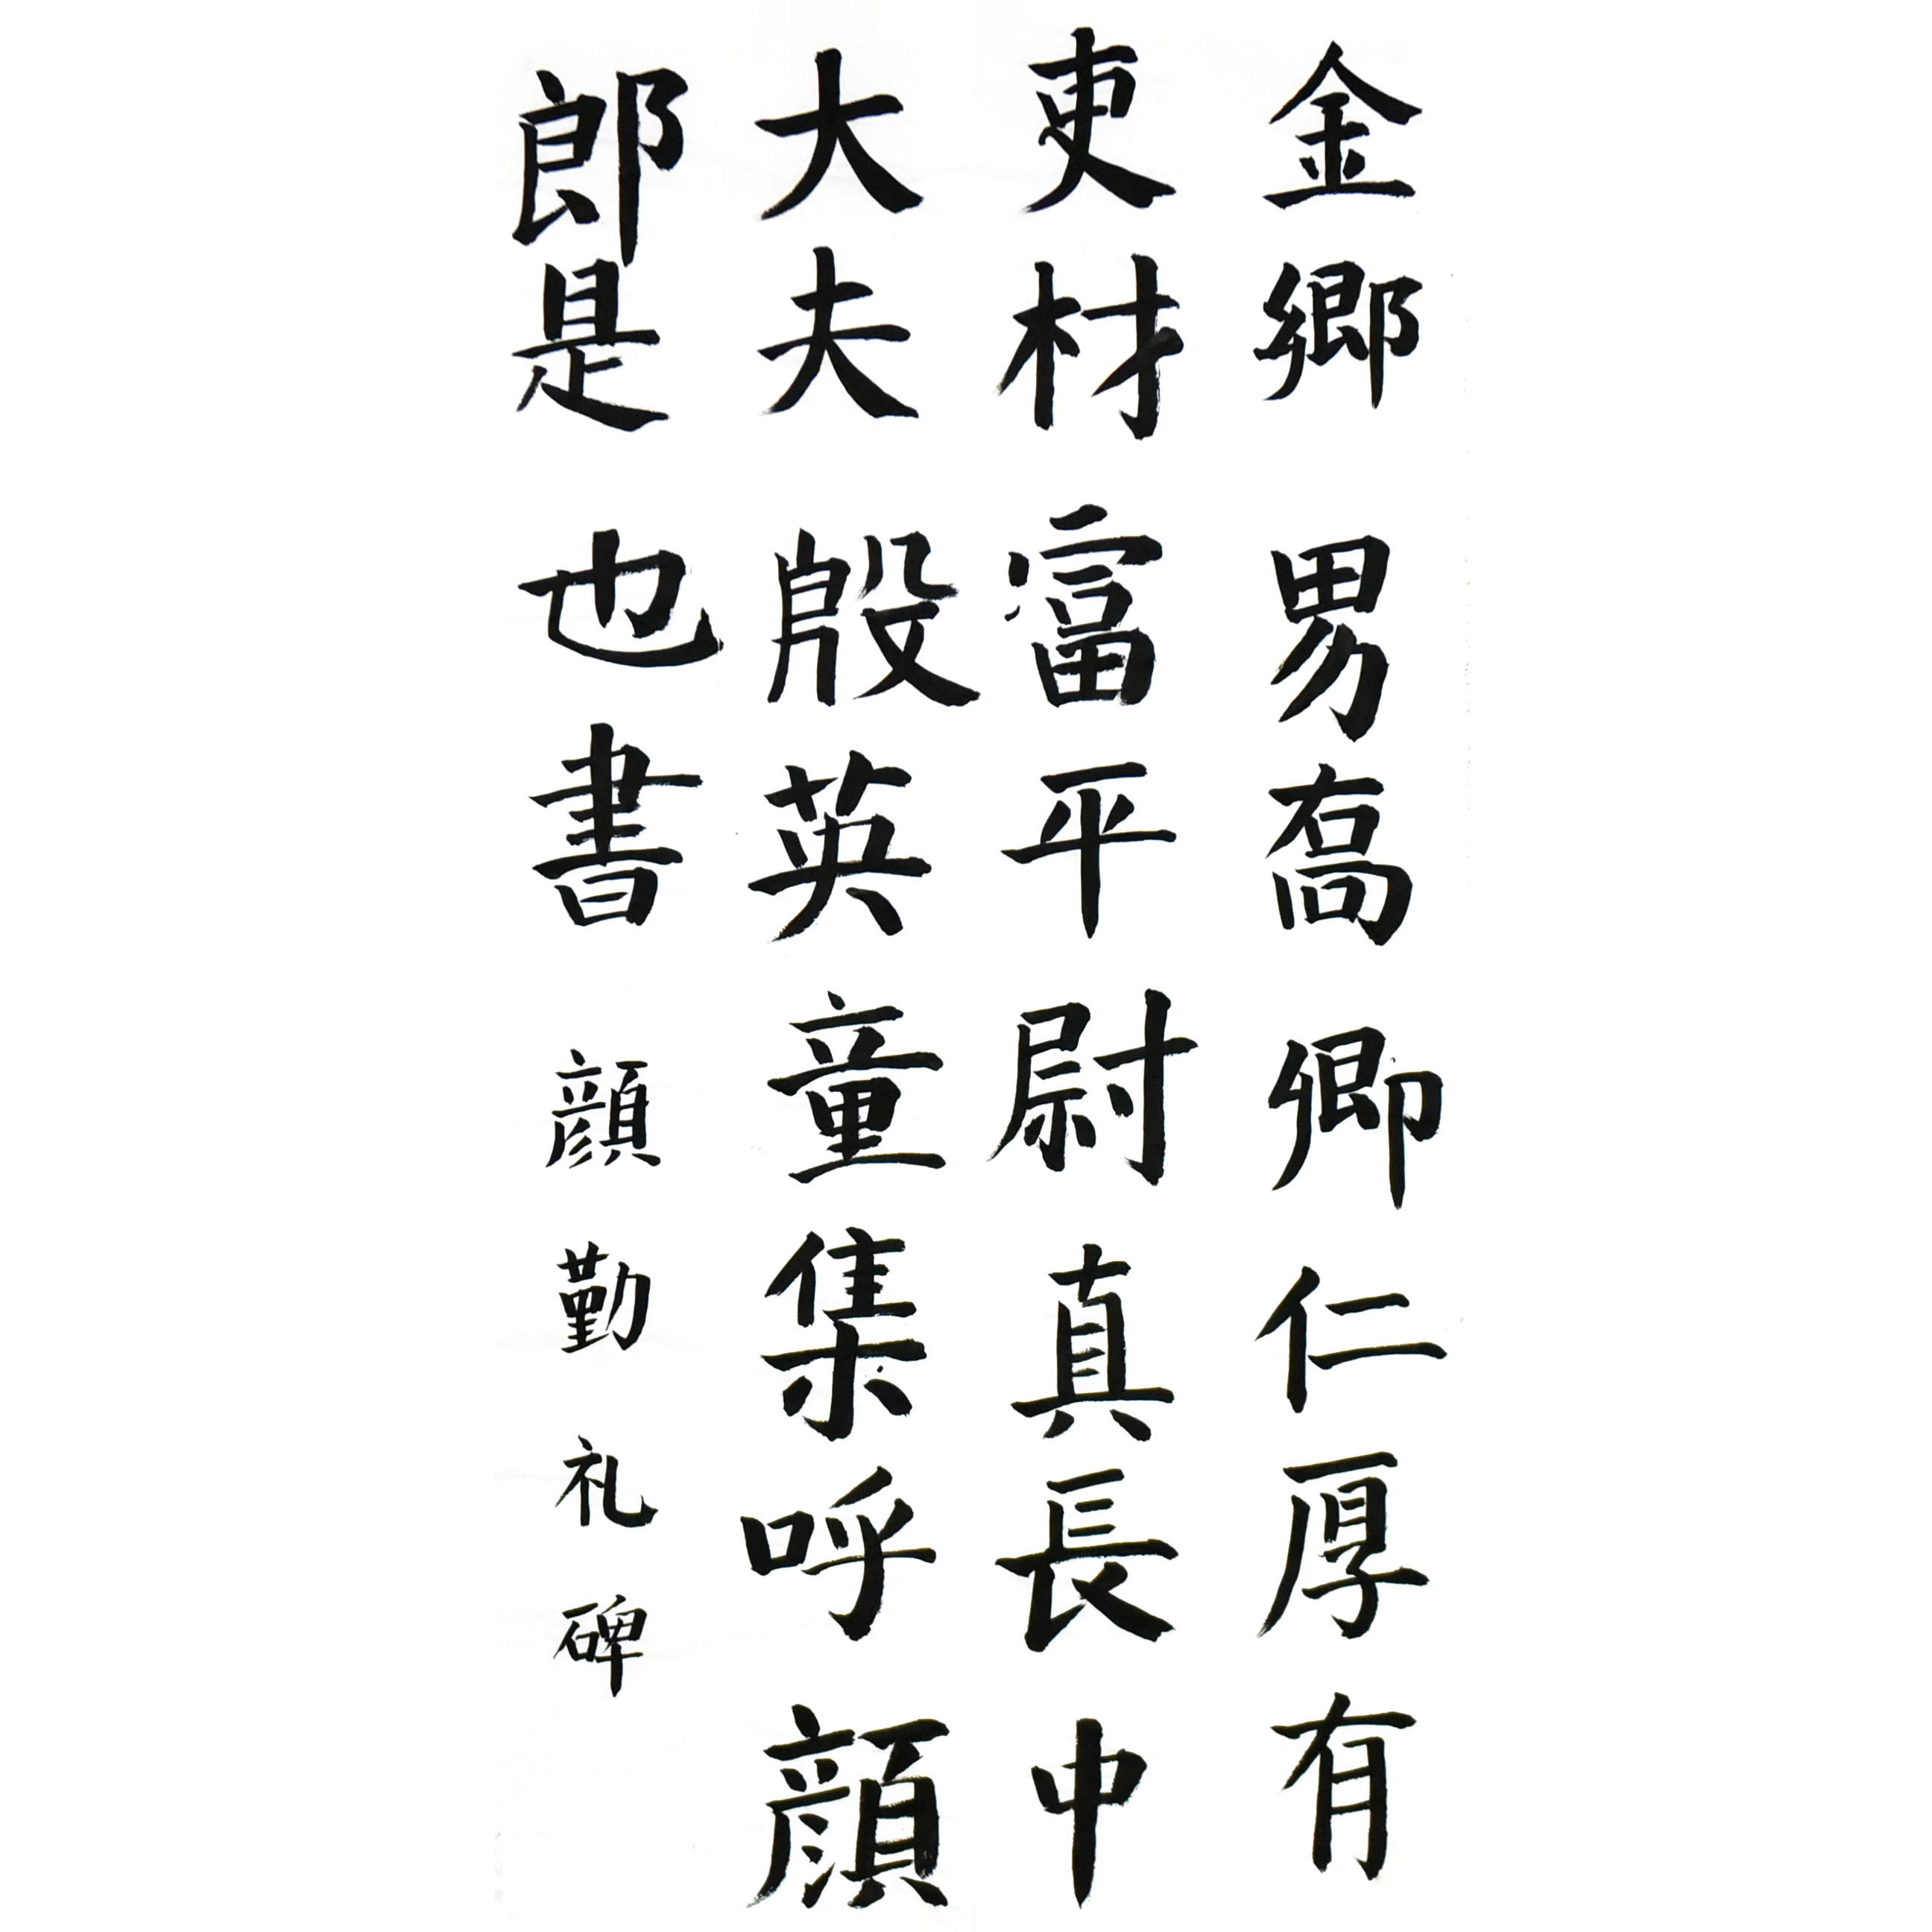 金鄉男喬卿仁厚有
吏材富平尉真長中
大夫殷英童集呼顔
郎是也書顔勤礼碑